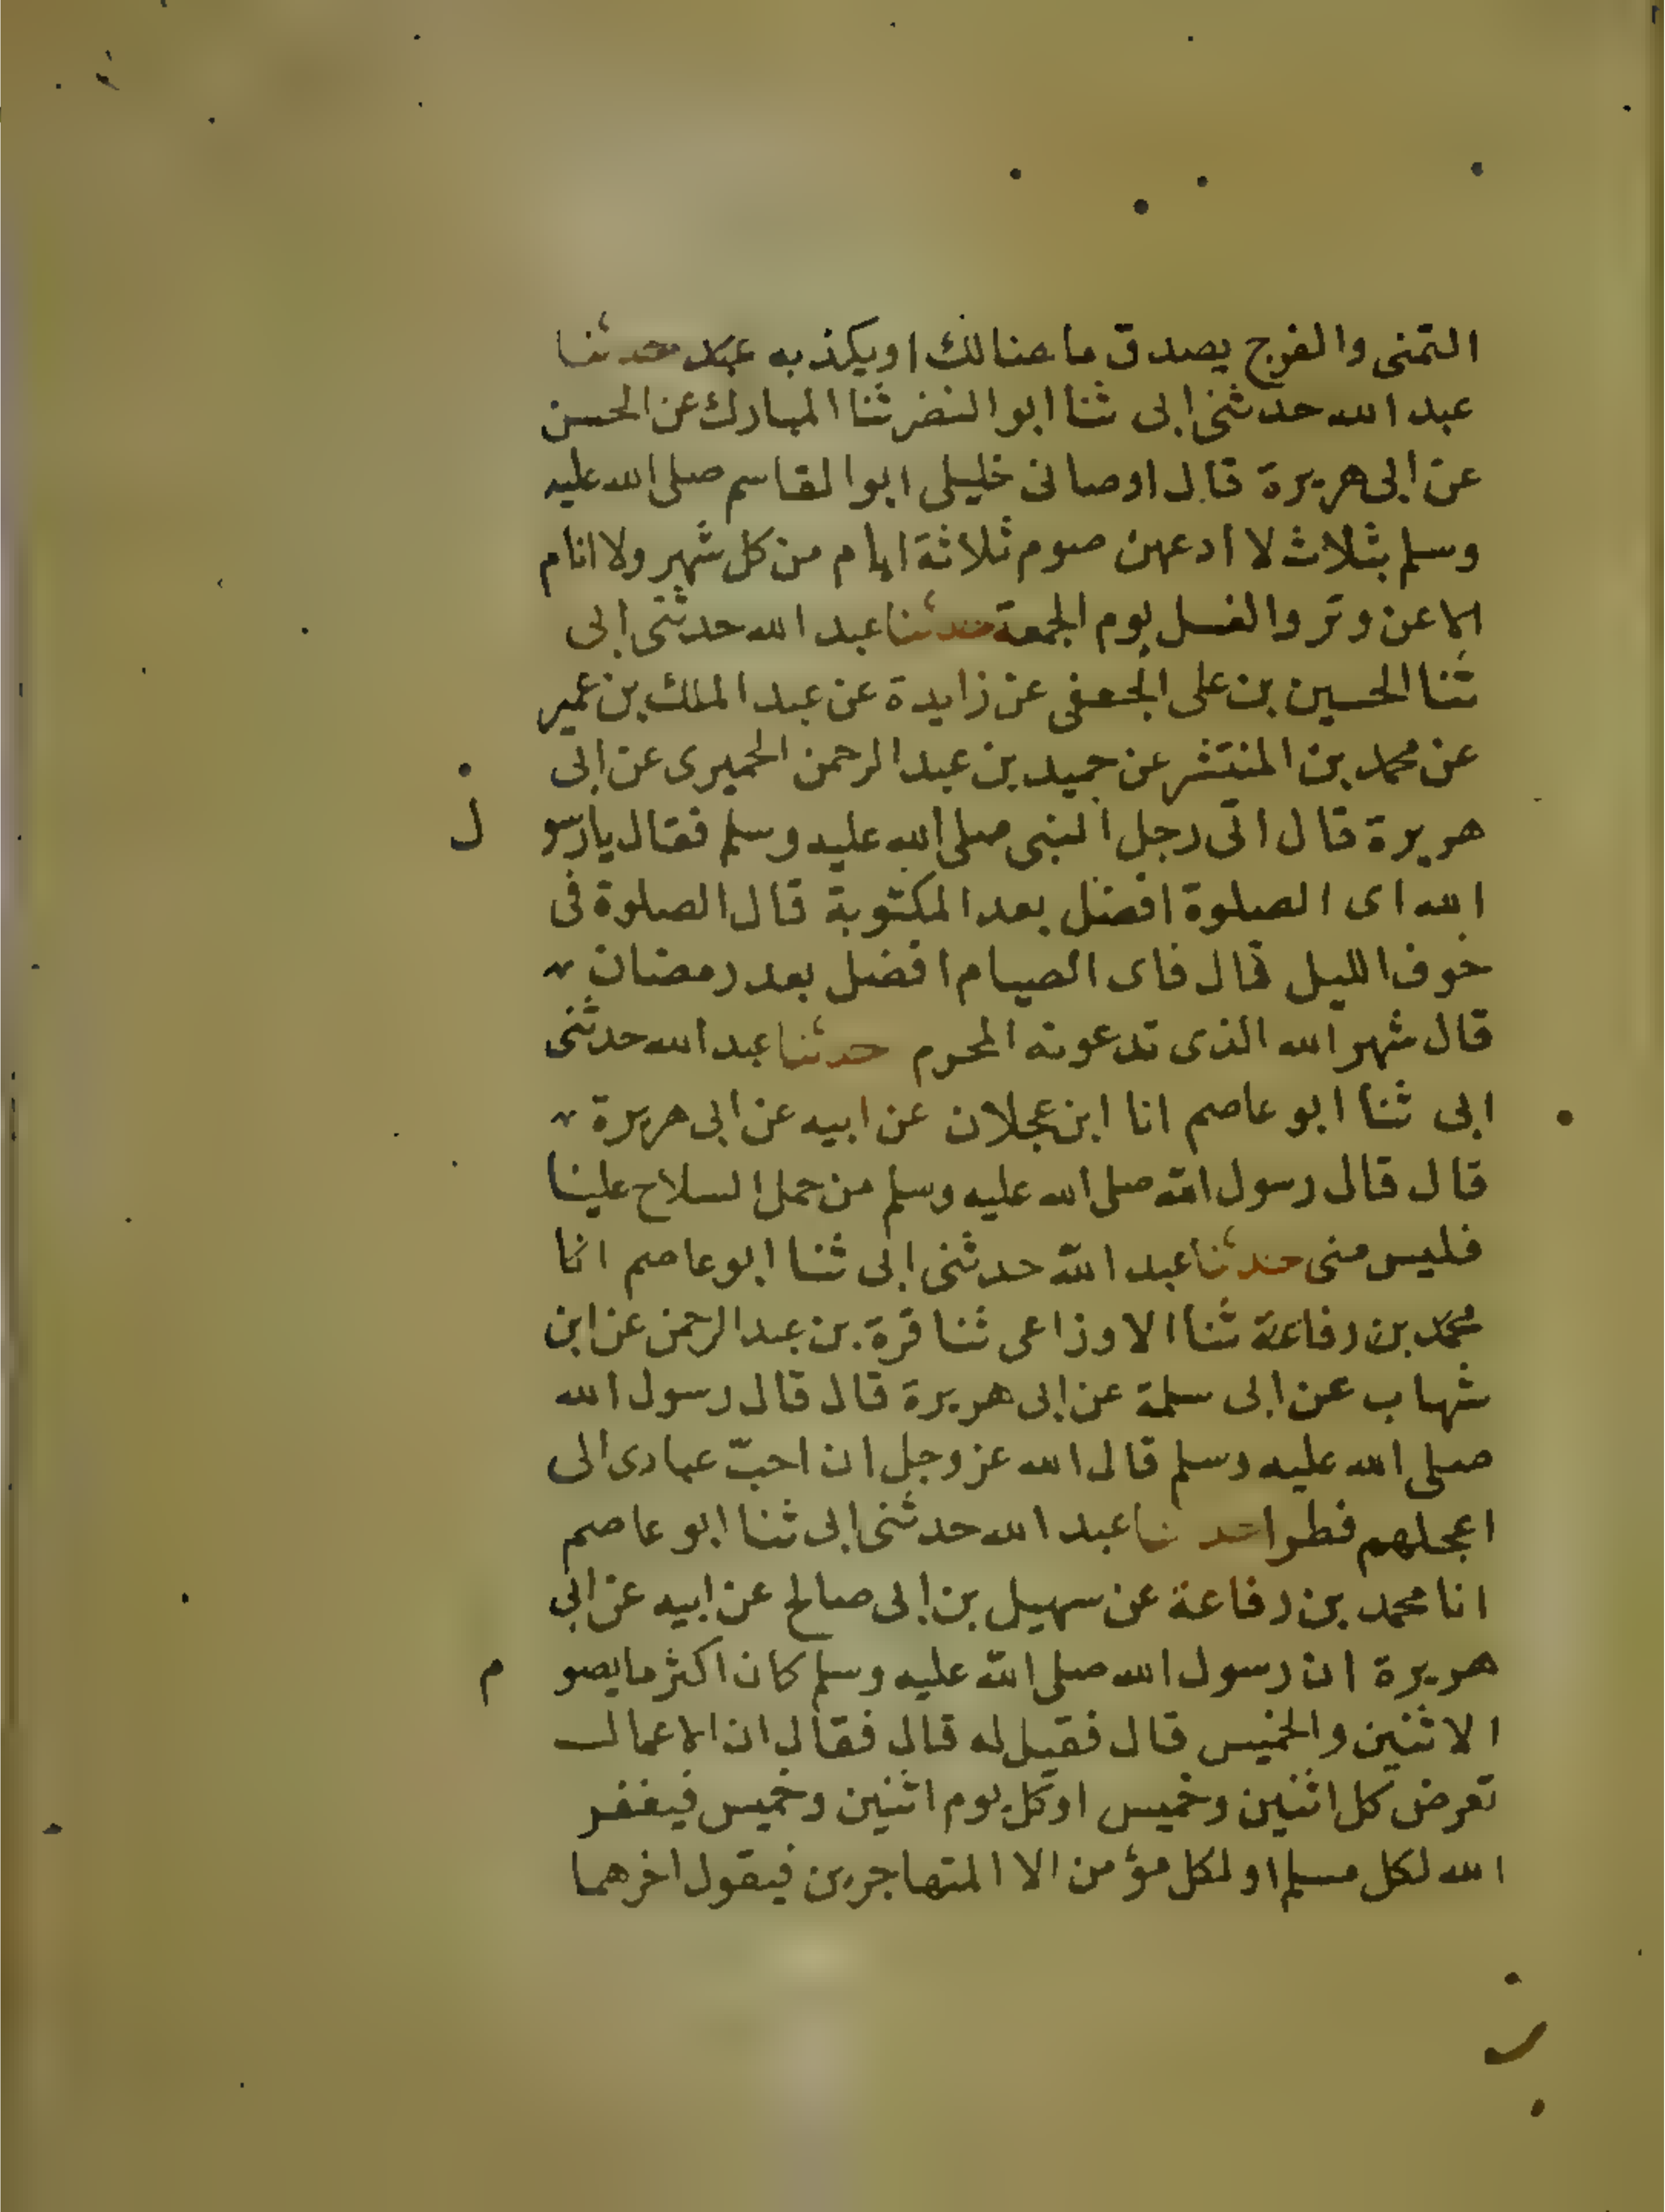 التمنى والفرج يصدق ما هنالك او يكذبه حدثنا
عبد الله حدثنى ابى ثنا ابو النضر ثنا المبارك عن الحسن
عن ابى هريرة قال اوصانى خليلى ابو القاسم صلى الله عليه
وسلم بثلاث لا ادعهن صوم ثلاثة ايام من كل شهر ولا انام
الا عن وتر والغسل يوم الجمعة حدثنا عبد الله حدثنى ابى
ثنا الحسين بن على الجعفى عن زايدة عن عبد الملك بن عمير
عن محمد بن المنتشر عن حميد بن عبد الرحمن الحميرى عن ابى
هريرة قال اتى رجل النبى صلى الله عليه وسلم فقال يا رسول
الله اى الصلوة افضل بعد المكتوبة قال الصلوة فى
خوف الليل قال فاى الصيام افضل بعد رمضان
قال شهر الله الذى تدعونه المحرم حدثنا عبد الله حدثنى
ابى ثنا ابو عاصم انا ابن عجلان عن ابيه عن ابى هريرة
قال قال رسول الله صلى الله عليه وسلم من حمل السلاح علينا
فليس منى حدثنا عبد الله حدثنى ابى ثنا ابو عاصم انا
محمد بن رفاعة ثنا الاوزاعى ثنا قرة بن عبد الرحمن عن ابن
شهاب عن ابى سلمة عن ابى هريرة قال قال رسول الله
صلى الله عليه وسلم قال الله عز وجل ان احبّ عبادى الى
اعجلهم فطرا حدثنا عبد الله حدثنى ابى ثنا ابو عاصم
انا محمد بن رفاعة عن سهيل بن ابى صالح عن ابيه عن ابى
هريرة ان رسول الله صلى الله عليه وسلم كان اكثر ما يصوم
الاثنين والخميس قال فقيل له قال فقال ان الاعمال
تعرض كل اثنين وخميس او كل يوم اثنين وخميس فيغفر
الله لكل مسلم او لكل مؤمن الا المتهاجرين فيقول اخرهما